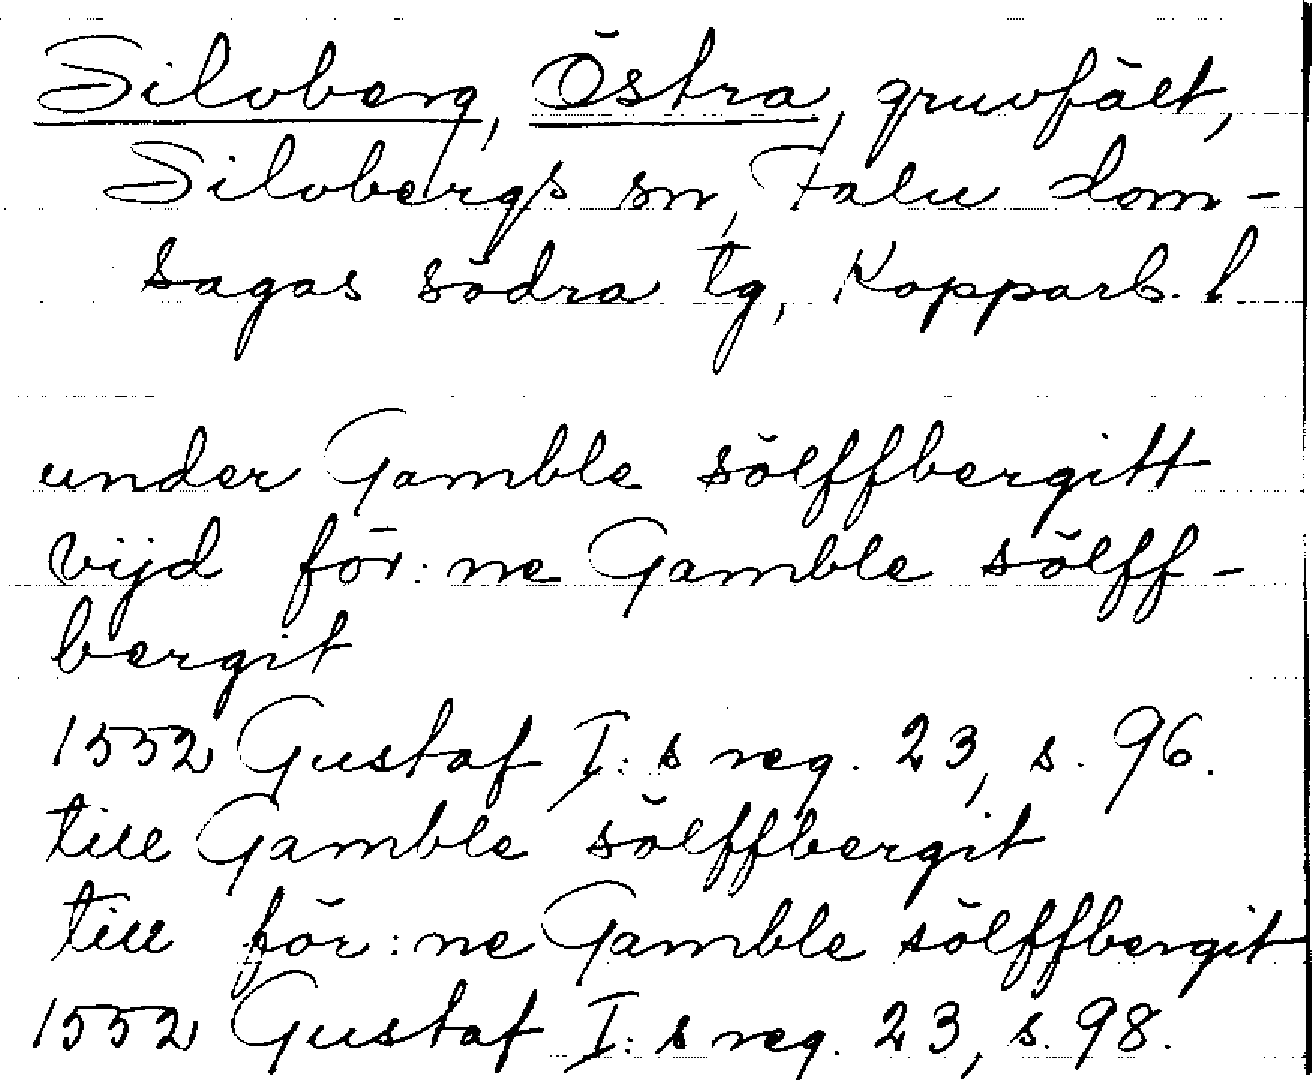 Silvberg, Östra, gruvfält,
Silvbergs sn, Falu dom-
sagas södra tg, Kopparb. l.
under Gamble sölffbergitt
vijd för:ne Gamble sölff-
bergit
1552 Gustaf I:s reg. 23, s. 96.
till Gamble sölffbergit
till för:ne Gamble sölffbergit
1552 Gustaf I:s reg. 23, s. 98.